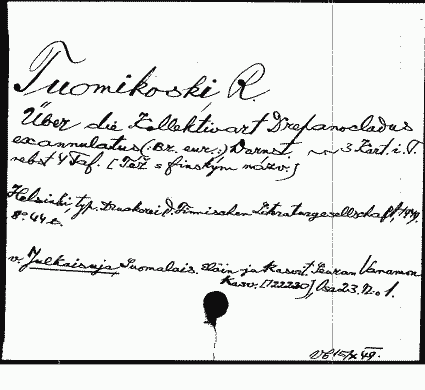 Tuomikoski R.
Über die Kollektivart Drepanocladus
exannulatus (Br. eur.) Darnst. 3 Kart. i. T.
nebst 4 Taf. [Též s finským názv.]
Helsinki, typ. Druckerei d. Finnischen Literaturgesellschaft, 1949.
8° 44 s.
v. Julkaisuja, Suomalais. eläin ja kasvit. Seuran Vanamon
Kasv. [122230], Osa 23. No 1.